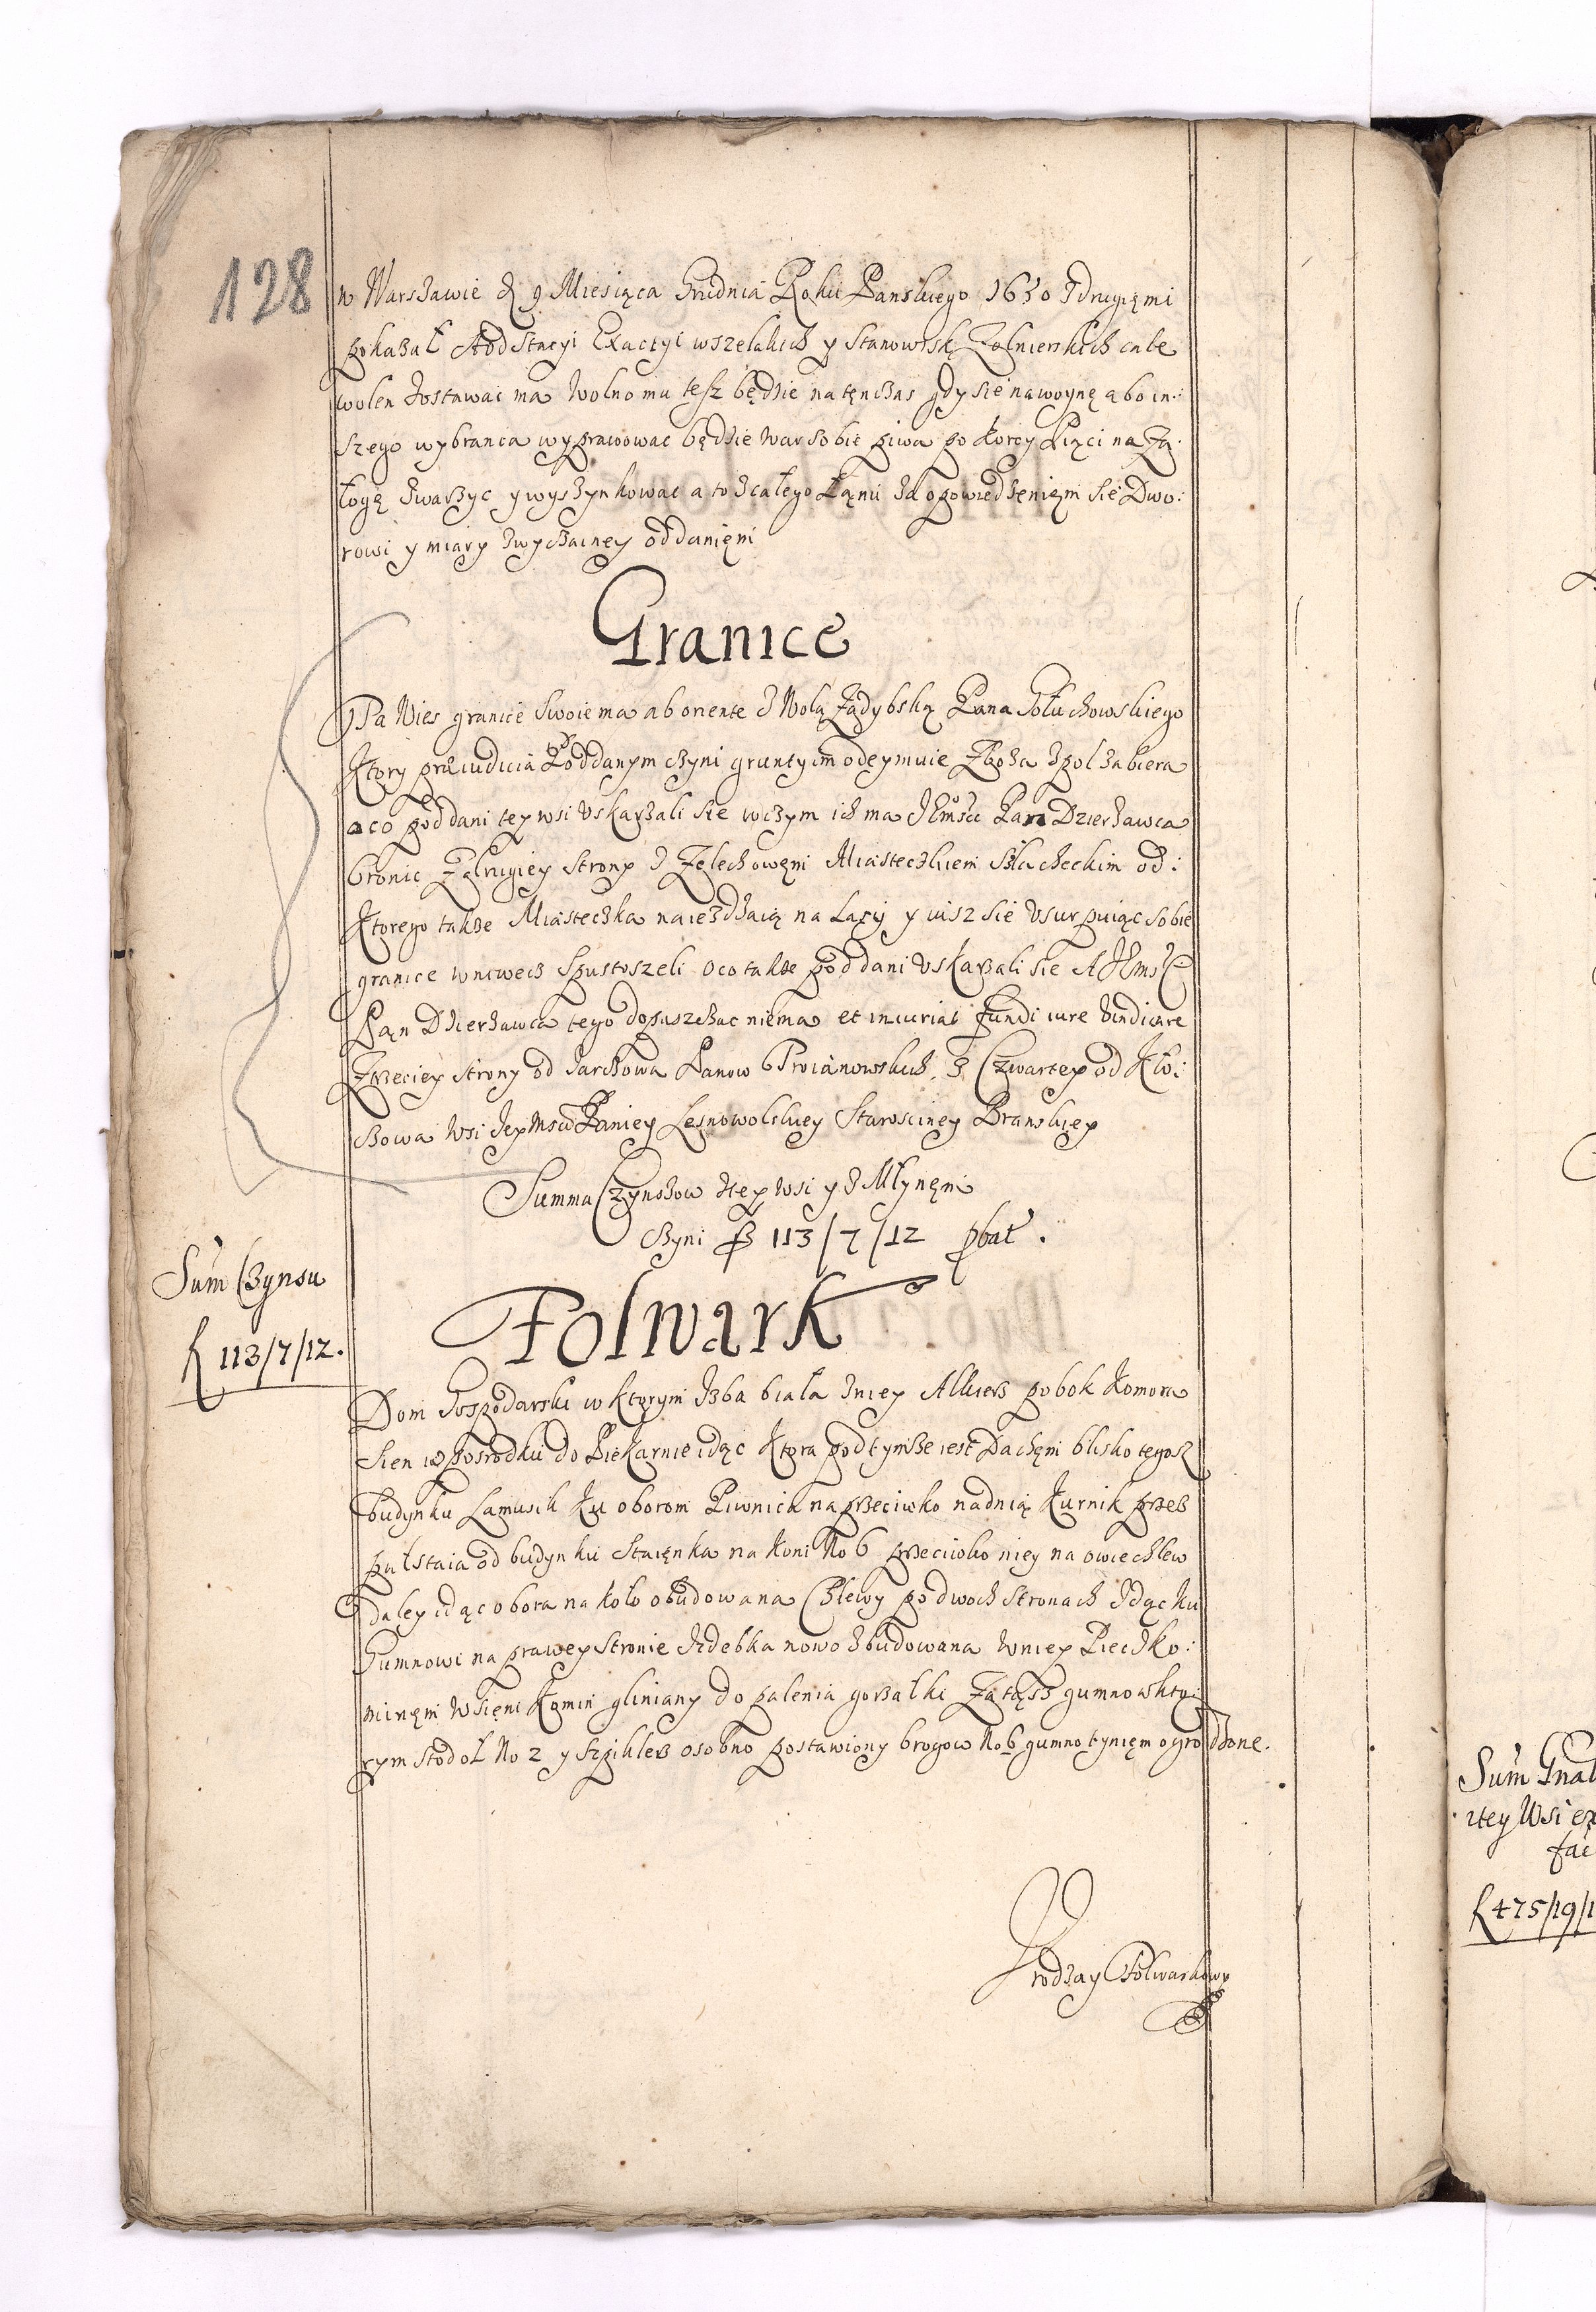 128
w Warszawie d 9 Miesiąca Grudnia Roku Panskiego 1630 Z drugięmi
pokazał A od Stacyi Exactyi wszelakich y Stanowisk Zołnierskich cale
wolen zostawac ma Wolno mu tesz będzie na tęnczas gdy sie na woynę abo in:
szego wybranca wyprawowac będzie War sobie piwa po Korcy Pięci na Za
łogę Zwarzyc y wyszynkowac a to z całego Łanu za opowiedzenięm sie Dwo:
rowi y miary zwyczainey oddanięm
Granice
Ta Wies granice swoie ma ab oriente z Wolą Zadybską Pana Gołuchowskiego
Ktory præiudicia Poddanym czyni grunty im odeymuie Zboza z pol zabiera
o co poddani tey wsi uskarzali sie w czym ich ma Jego Mość Pan Dzierzawca
bronic Z drugiey Strony z Zelechowęm Miasteczkiem Szlacheckim od:
Ktorego takze Miasteczka naiezdzaią na Lasy y iusz sie usurpuiąc sobie
granice wniwecz spustoszeli o co takze poddani uskarzali sie A JEmść
Pan Dzierzawca tego dopuszczac niema et iniurias fundi iure vindicare
Trzeciey Strony od Jarczowa Panow Troianowskich, Z Czwartey od Kło:
czowa Wsi Jey Msci Paniey Lesnowolskiey Starosciney Branskiey
Summa Czynszow z tey Wsi y z Młynęm
Czyni f 113/7/12 pbat.
Sum̃ Czynsu
f 113/7/12.
Folwark
Dom Gospodarski w ktorym Izba biała z niey Alkierz pobok Komora
Sien w posrodku do Piekarnie idąc Ktora pod tymze iest Dachęm blisko tegosz
budynku Lamusik Ku oborom Piwnica naprzeciwko nad nią Kurnik przez
puł staia od budynku Staięnka na Koni No 6 przeciwko niey na owce chlew
daley idąc obora na koło obudowana Chlewy po dwoch Stronach Idąc ku
Gumnowi na prawey Stronie Izdebka nowo zbudowana w niey Piec z ko:
minęm W sięni Komin gliniany do palenia gorzałki Za tąsz gumno w kto:
rym Stodoł No 2 y Szpiklerz osobno postawiony brogow No 6 gumno tynięm ogrodzone.
Vrodzay Folwarkowy
Sum̃ Gnal
ztey Wsi ex
fac
f 475/19/1